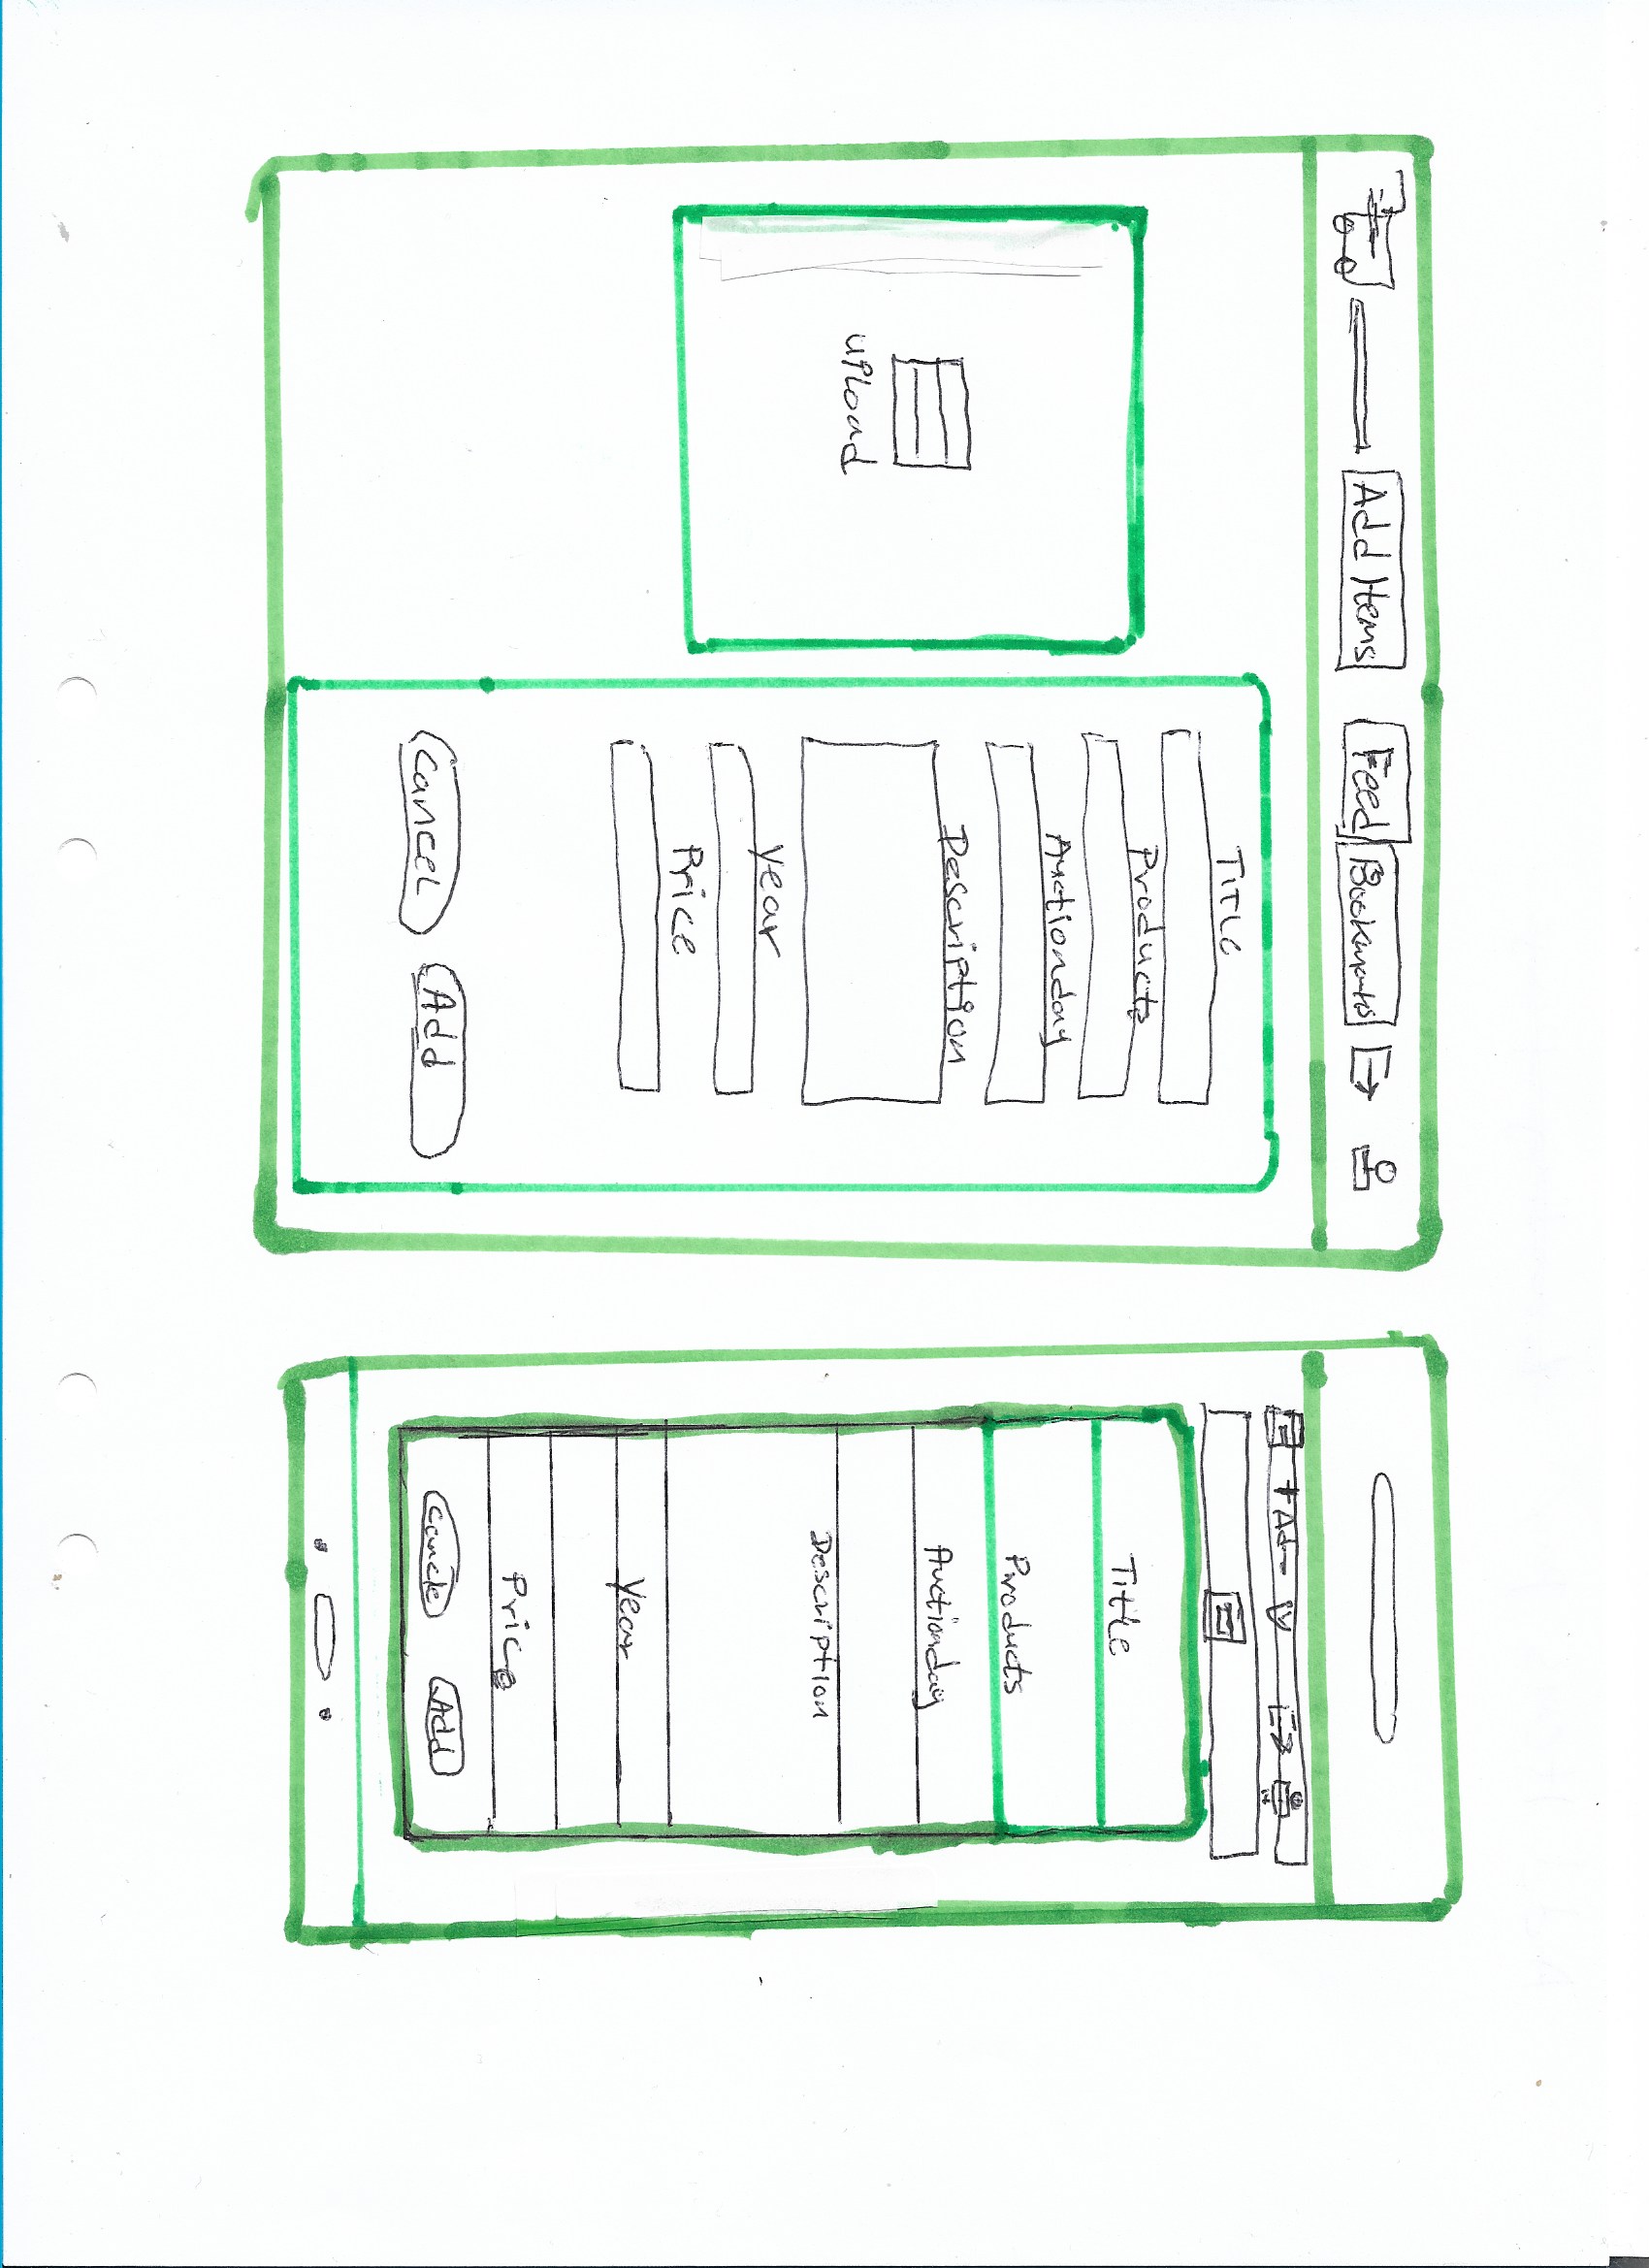 Add Items Feed Bookmarks
TITLE
Products
Auctionday
Description
upload
year
Price
Cancel Add
+ Ad
Title
Products
Auctionday
Description
year
Price
Cancle Add